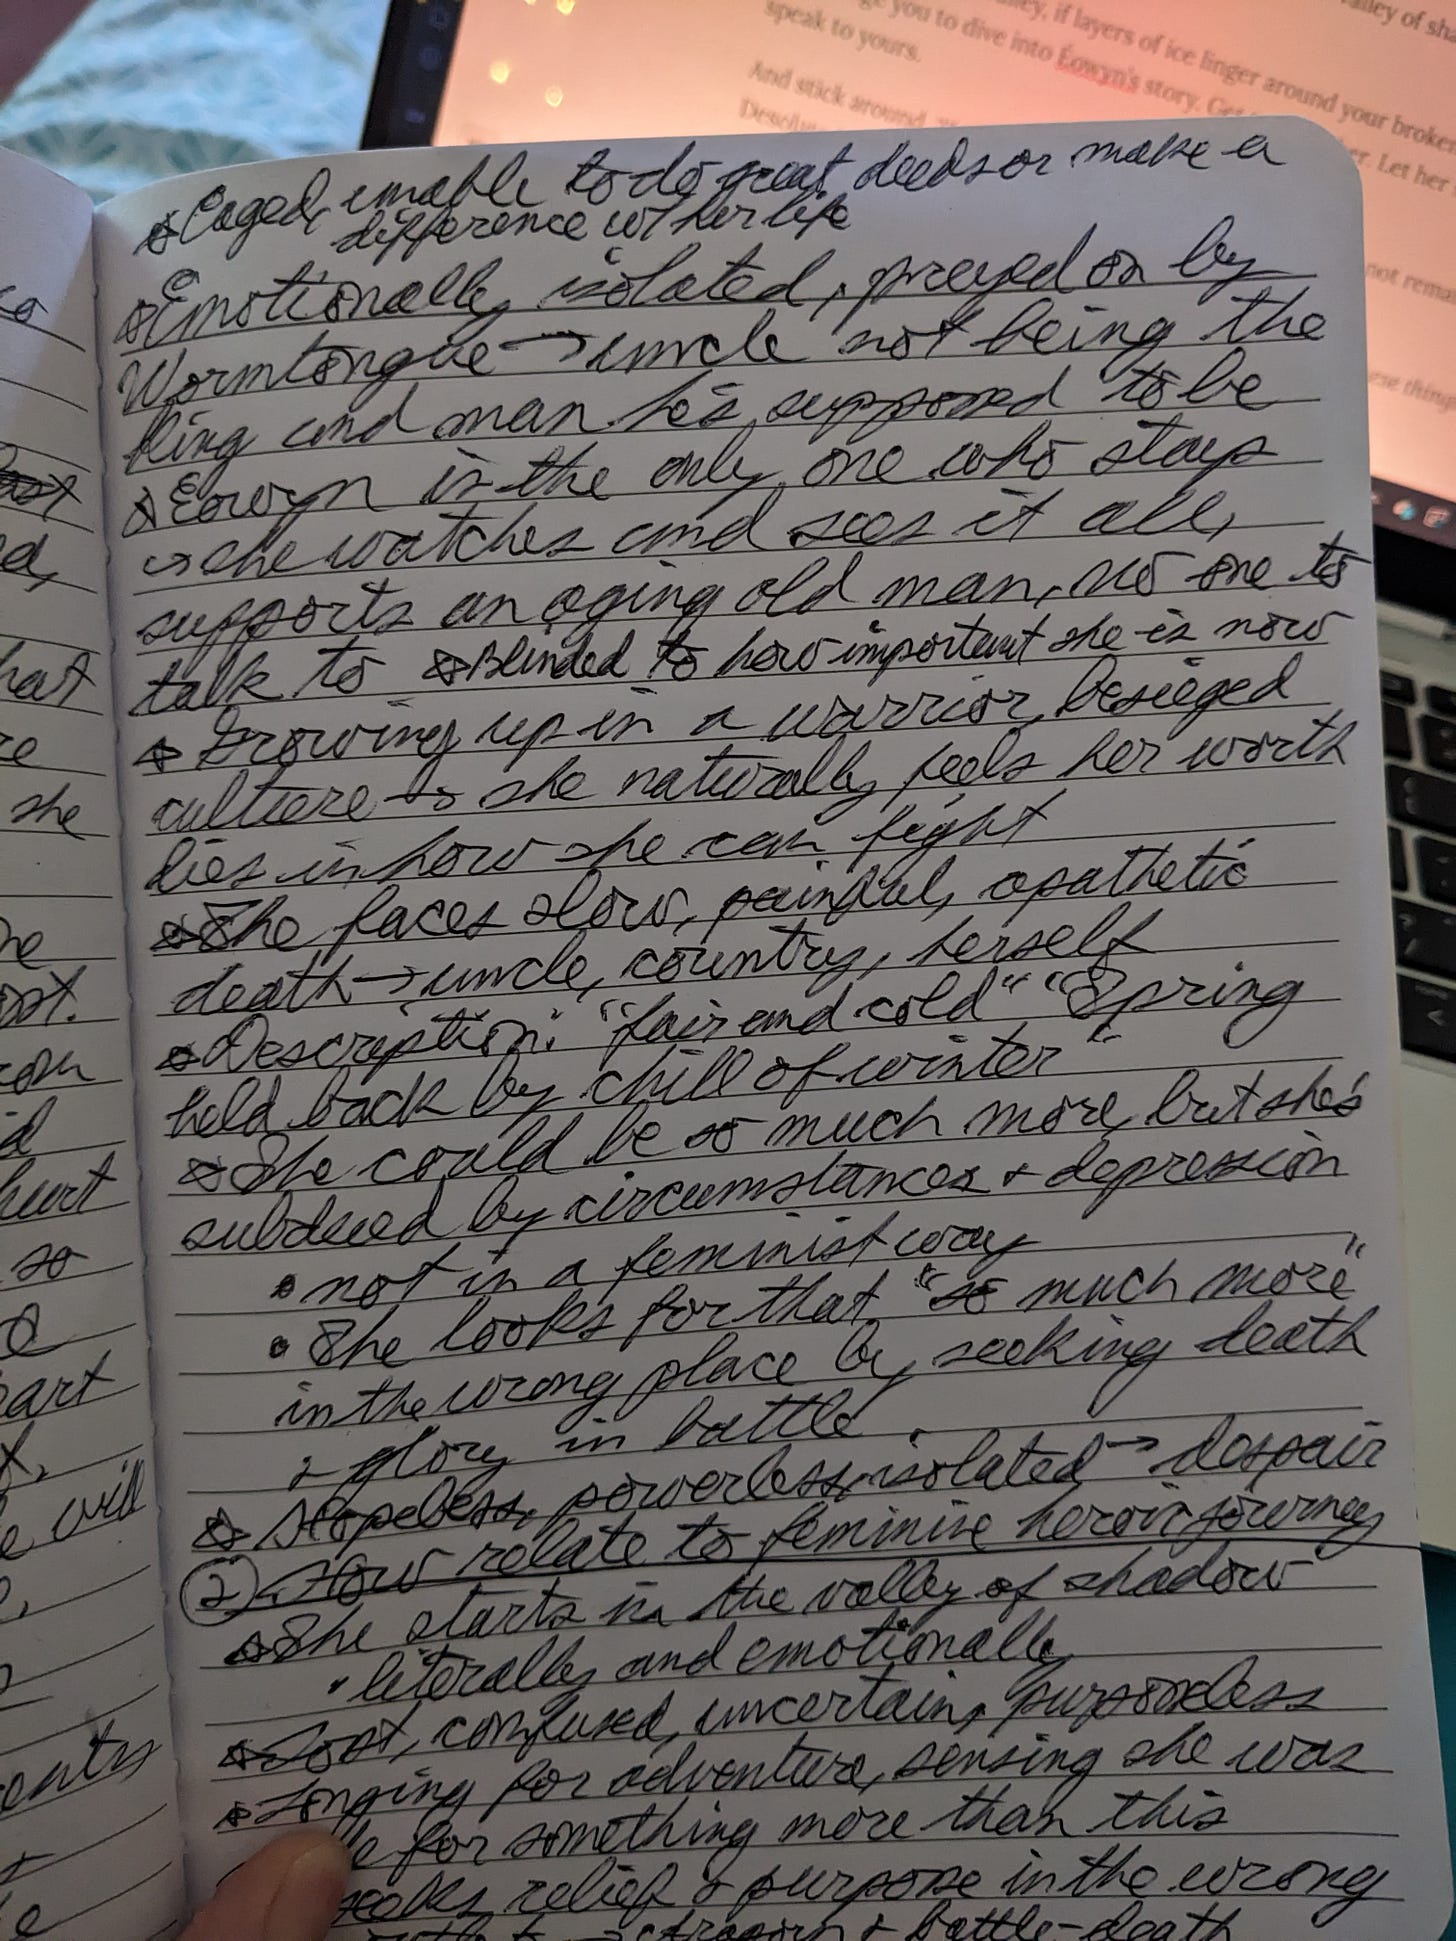 ley, if layers of ice linger around your broken
valley of sha
ge you to dive into Éowyn's story. Get
speak to yours.
er. Let her
And stick around
not remai
ese thing
☆Caged, unable to do great deeds or make a
difference w/ her life
☆Emotionally isolated, preyed on by
Wormtongue → uncle not being the
king and man he's supposed to be
☆Eowyn is the only one who stays
↪ she watches and sees it all,
supports an aging old man, no one to
talk to ☆Blinded to how important she is now
☆Growing up in a warrior, besieged
culture → she naturally feels her worth
lies in how she can fight
☆She faces slow, painful, apathetic
death → uncle, country, herself
☆Description: "fair and cold" "Spring
held back by chill of winter"
☆She could be so much more, but she's
subdued by circumstances + depression
• not in a feminist way
• She looks for that "so much more"
in the wrong place by seeking death
+ glory in battle.
☆Hopeless, powerless, isolated → despair
② How relate to feminine heroic journey
☆She starts in the valley of shadow
• literally and emotionally
☆Lost, confused, uncertain, purposeless
☆Longing for adventure, sensing she was
for something more than this
seeks relief & purpose in the wrong
→ Aragorn + battle-death
she
hat
he
hurt
so
part
will